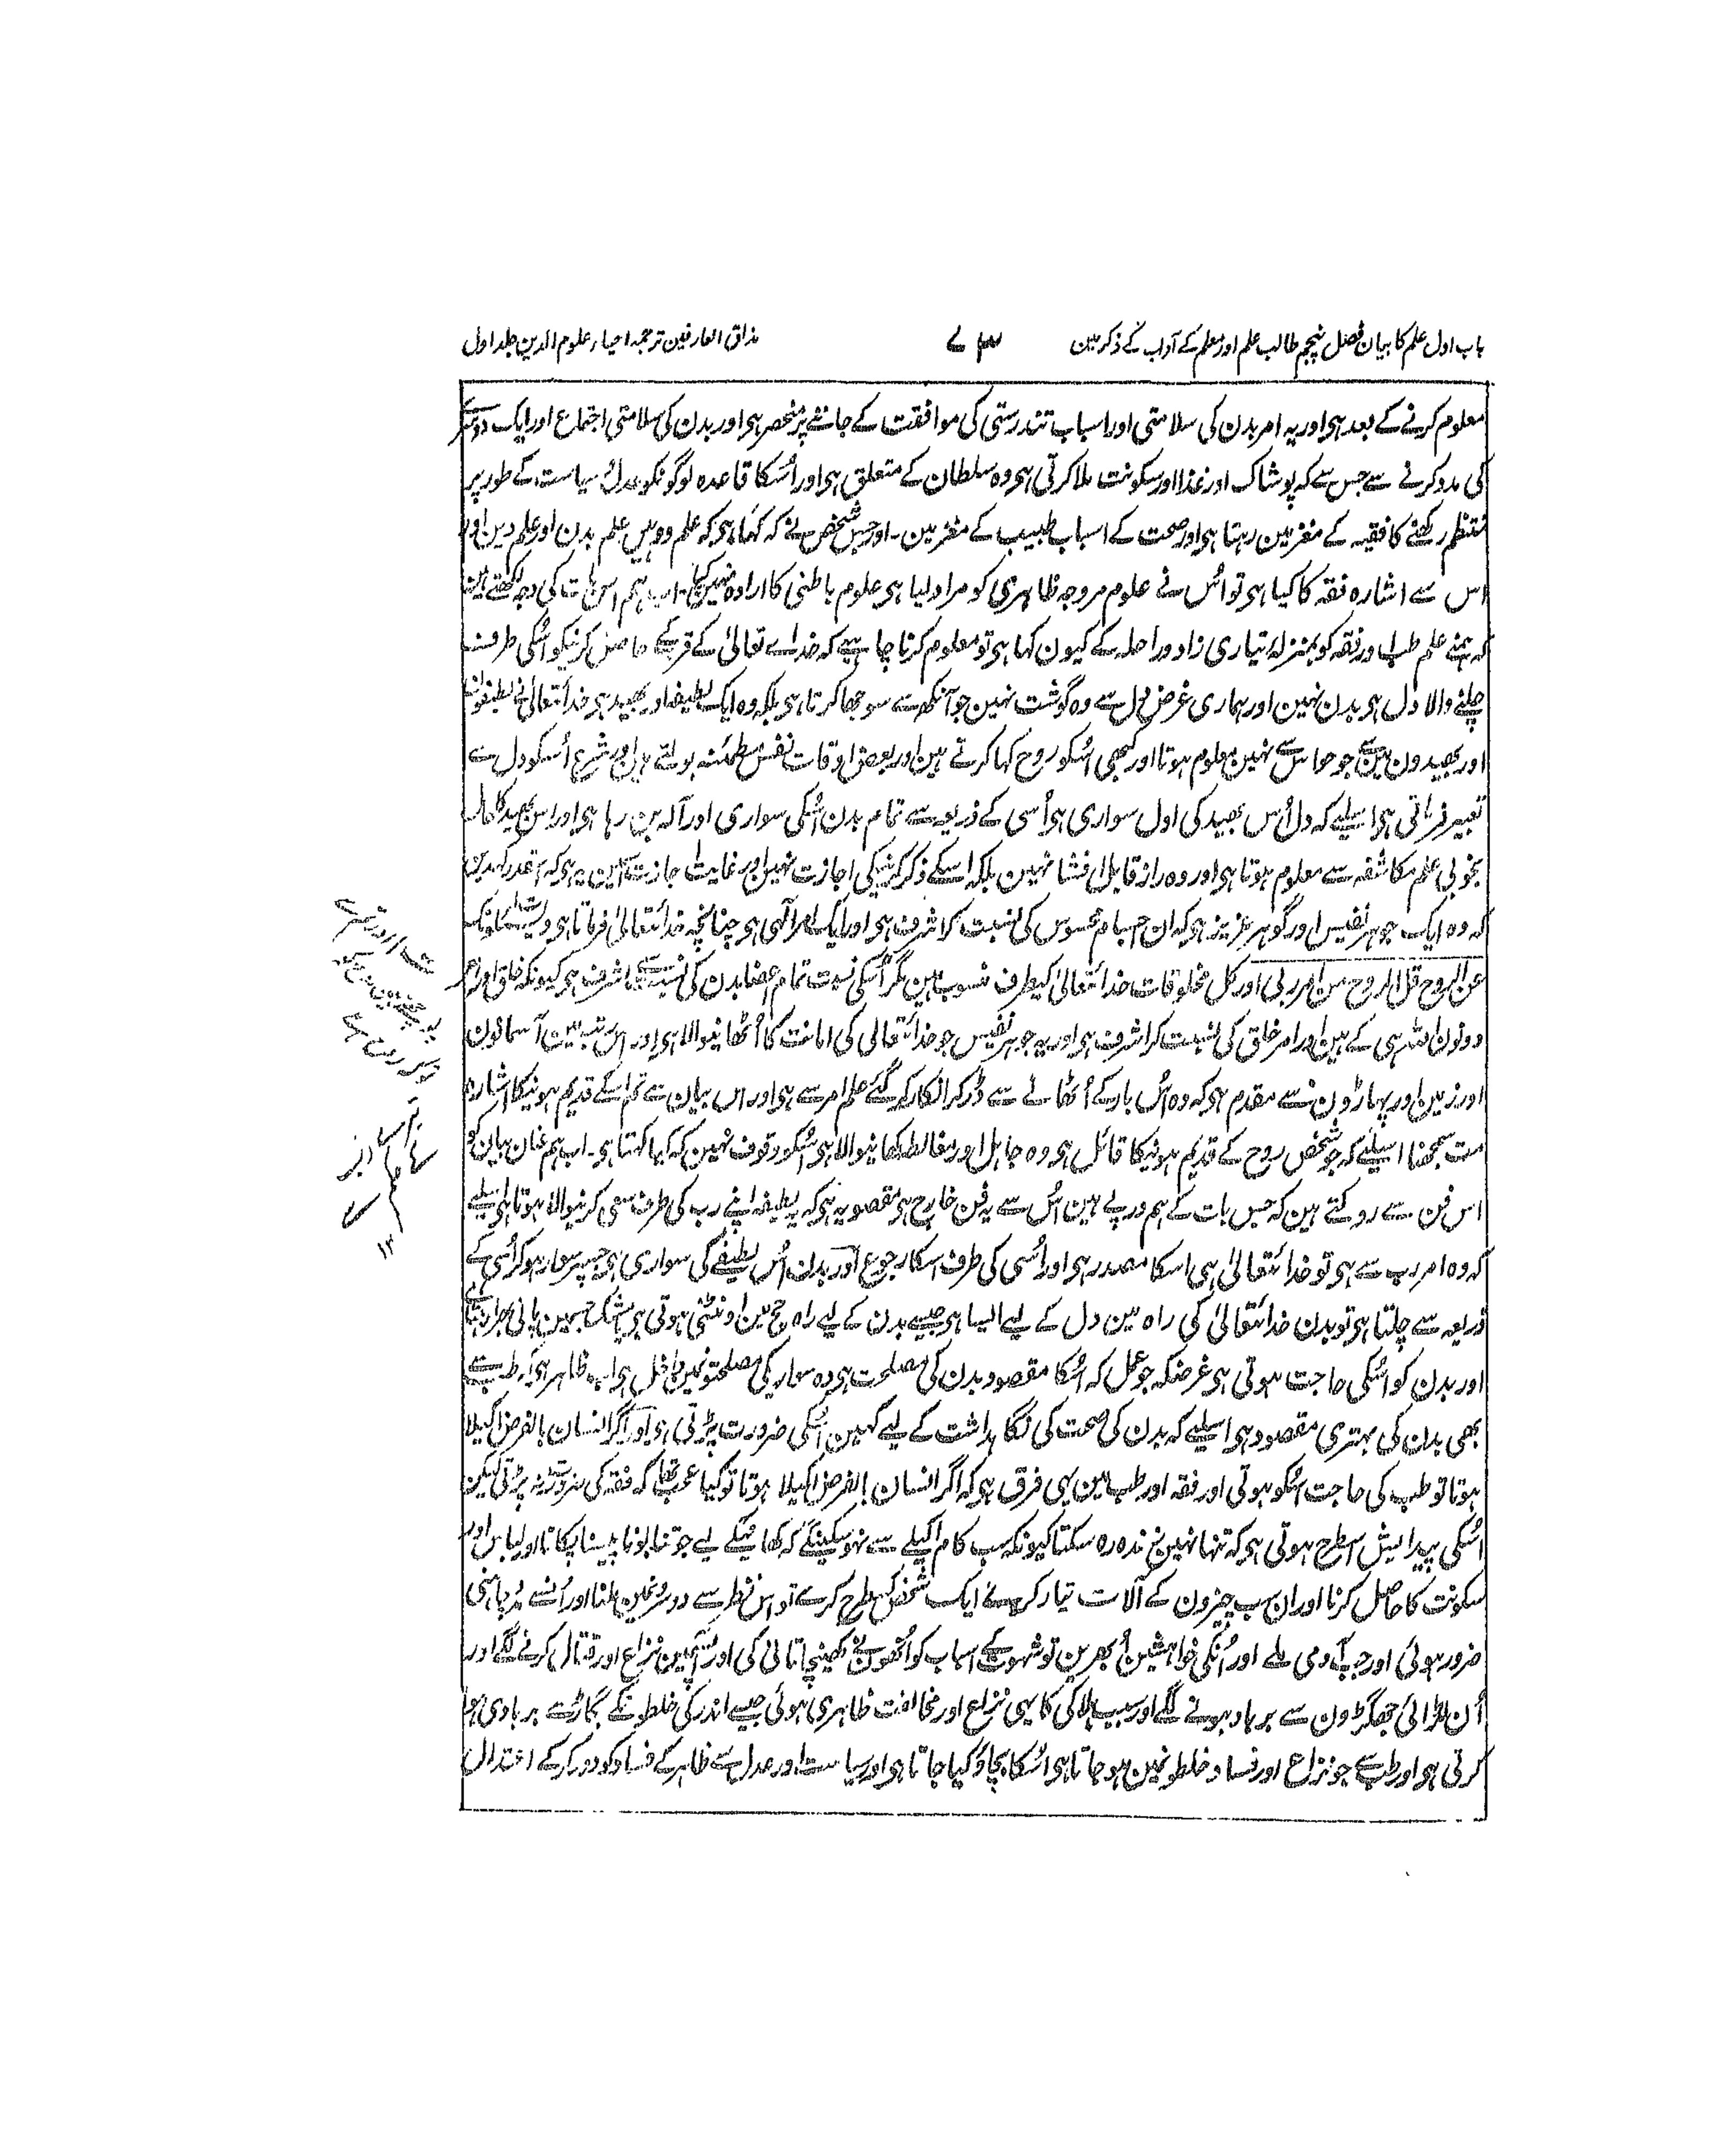 باب اول علم کا بیان فصل پنجم طالب علم اور معلم کے آداب کے ذکر مین
۷۳
مذاق العارفین ترجمہ احیاء علوم الدین جلد اول
معلوم کرنے کے بعد ہی اور یہ امر بدن کی سلامتی اور اسباب تندرستی کی موافقت کے جاننے پر منحصر ہی اور بدن کی سلامتی اجتماع اور ایک دوسرے
کی مدد کرنے سے جس سے کہ پوشاک اور غذا اور سکونت ملا کرتی ہی وہ سلطان کے متعلق ہی اور اُسکا قاعدہ لوگونکو عدل سیاست کے طور پر
منتظم رکھنے کا فقیہ کے مغز مین رہتا ہی اور صحت کے اسباب طبیب کے مغز مین۔ اور جس شخص نے کہ کہا ہی کہ علم دو ہین علم بدن اور علم دین اور
اس سے اشارہ فقہ کا کیا ہی تو اُس نے علوم مروجہ ظاہری کو مراد لیا ہی علوم باطنی کا ارادہ نہین کیا۔ اب ہم اس بات کی وجہ لکھتے ہین
کہ ہمنے علم طب اور فقہ کو بمنزلہ تیاری زاد و راحلہ کے کیون کہا ہی تو معلوم کرنا چاہیے کہ خداے تعالیٰ کے قرب کے حاصل کرنیکو اُسکی طرف
چلنے والا دل ہی بدن نہین اور ہماری غرض دل سے وہ گوشت نہین جو آنکھ سے سوجھا کرتا ہی بلکہ وہ ایک لطیفہ اور بھید ہی خداتعالیٰ کے لطیفون
اور بھیدون مین سے جو حواس سے نہین معلوم ہوتا اور کبھی اُسکو روح کہا کرتے ہین اور بعض اوقات نفس مطمئنہ بولتے ہین اور شرع اُسکو دل سے
تعبیر فرماتی ہی اسلیے کہ دل اُس بھید کی اول سواری ہی اُسی کے ذریعہ سے تمام بدن اُسکی سواری اور آلہ بن رہا ہی اور اس بھید کا حال
بخوبی علم مکاشفہ سے معلوم ہوتا ہی اور وہ راز قابل افشا نہین بلکہ اسکے ذکر کرنیکی اجازت نہین اور غایت اجازت اسین یہ ہی کہ اسقدر کہدین
کہ وہ ایک جوہر نفیس اور گوہر عزیز ہی کہ ان اجسام محسوس کی نسبت کر اشرف ہی اور ایک امر الٰہی ہی چنانچہ خداتعالیٰ فرماتا ہی ویسئلونک
عن الروح قل الروح من امر ربی اور کل مخلوقات خداتعالیٰ کیطرف منسوب ہین مگر اُسکی نسبت تمام اعضا بدن کی نسبت سے اشرف ہی کیونکہ خلق اور امر
دونون اللہ ہی کے ہین اور امر خلق کی نسبت کر اشرف ہی اور یہ جوہر نفیس جو خداتعالیٰ کی امانت کا اُٹھانیوالا ہی اور اس رتبہ مین آسمانون
اور زمین اور پہاڑون سے مقدم ہی کہ وہ اُس بار کے اُٹھانے سے ڈر کر انکار کر گئے عالم امر سے ہی اور اس بیان سے تم اسکے قدیم ہونیکا اشارہ
مت سمجھنا اسلیے کہ جو شخص روح کے قدیم ہونیکا قائل ہی وہ جاہل اور مغالطہ کھانیوالا ہی اُسکو وقوف نہین کہ کیا کہتا ہی۔ اب ہم عنان بیان کو
اس فن سے روکتے ہین کہ جس بات کے ہم درپے ہین اُس سے یہ فن خارج ہی مقصود یہ ہی کہ یہ لطیفہ اپنے رب کی طرف سعی کرنیوالا ہوتا ہی اسلیے
کہ وہ امر رب سے ہی تو خداتعالیٰ ہی اسکا مصدر ہی اور اُسی کی طرف اسکا رجوع اور بدن اُس لطیفے کی سواری ہی جسپر سوار ہوکر اُسی کے
ذریعہ سے چلتا ہی تو بدن خداتعالیٰ کی راہ مین دل کے لیے ایسا ہی جیسے بدن کے لیے راہ حج مین اونٹنی ہوتی ہی یا مشک جسمین پانی بھرا رہتا ہے
اور بدن کو اُسکی حاجت ہوتی ہی غرضکہ جو عمل کہ اُسکا مقصود بدن کی مصلحت ہی وہ سواریکی مصلحتونمین داخل ہی اب ظاہر ہی کہ طب سے
بھی بدن کی بہتری مقصود ہی اسلیے کہ بدن کی صحت کی نگاہداشت کے لیے کہین اُسکی ضرورت پڑتی ہی اور اگر انسان بالفرض اکیلا
ہوتا تو طب کی حاجت اُسکو ہوتی اور فقہ اور طب مین یہی فرق ہی کہ اگر انسان بالفرض اکیلا ہوتا تو کیا عجب تھا کہ فقہ کی ضرورت نہ پڑتی لیکن
اُسکی پیدایش اسطرح ہوتی ہی کہ تنہا نہین زندہ رہ سکتا کیونکہ سب کام اکیلے سے نہو سکینگے کہ کھانیکے لیے جوتنا بونا پیسنا پکانا اور لباس اور
سکونت کا حاصل کرنا اور ان سب چیزون کے آلات تیار کرنے ایک شخص کسطرح کرے تو اس نظر سے دوسرونمین ملنا اور اُنسے مدد چاہنی
ضرور ہوئی اور جب آدمی ملے اور اُنکی خواہشین اُبھرین تو شہوت کے اسباب کو اُنھون نے کھینچا تانی کی اور آپسمین نزاع اور قتال کرنے لگے اور
اُن لڑائی جھگڑون سے برباد ہونے لگے اور سبب ہلاکی کا یہی نزاع اور مخالفت ظاہری ہوئی جیسے اندر کی خلطونکے بگاڑ سے بربادی ہوا
کرتی ہی اور طب سے جو نزاع اور فساد خلطونمین ہوجاتا ہی اُسکا بچاؤ کیا جاتا ہی اور سیاست اور عدل سے ظاہر کے فساد کو دور کرکے اعتدال